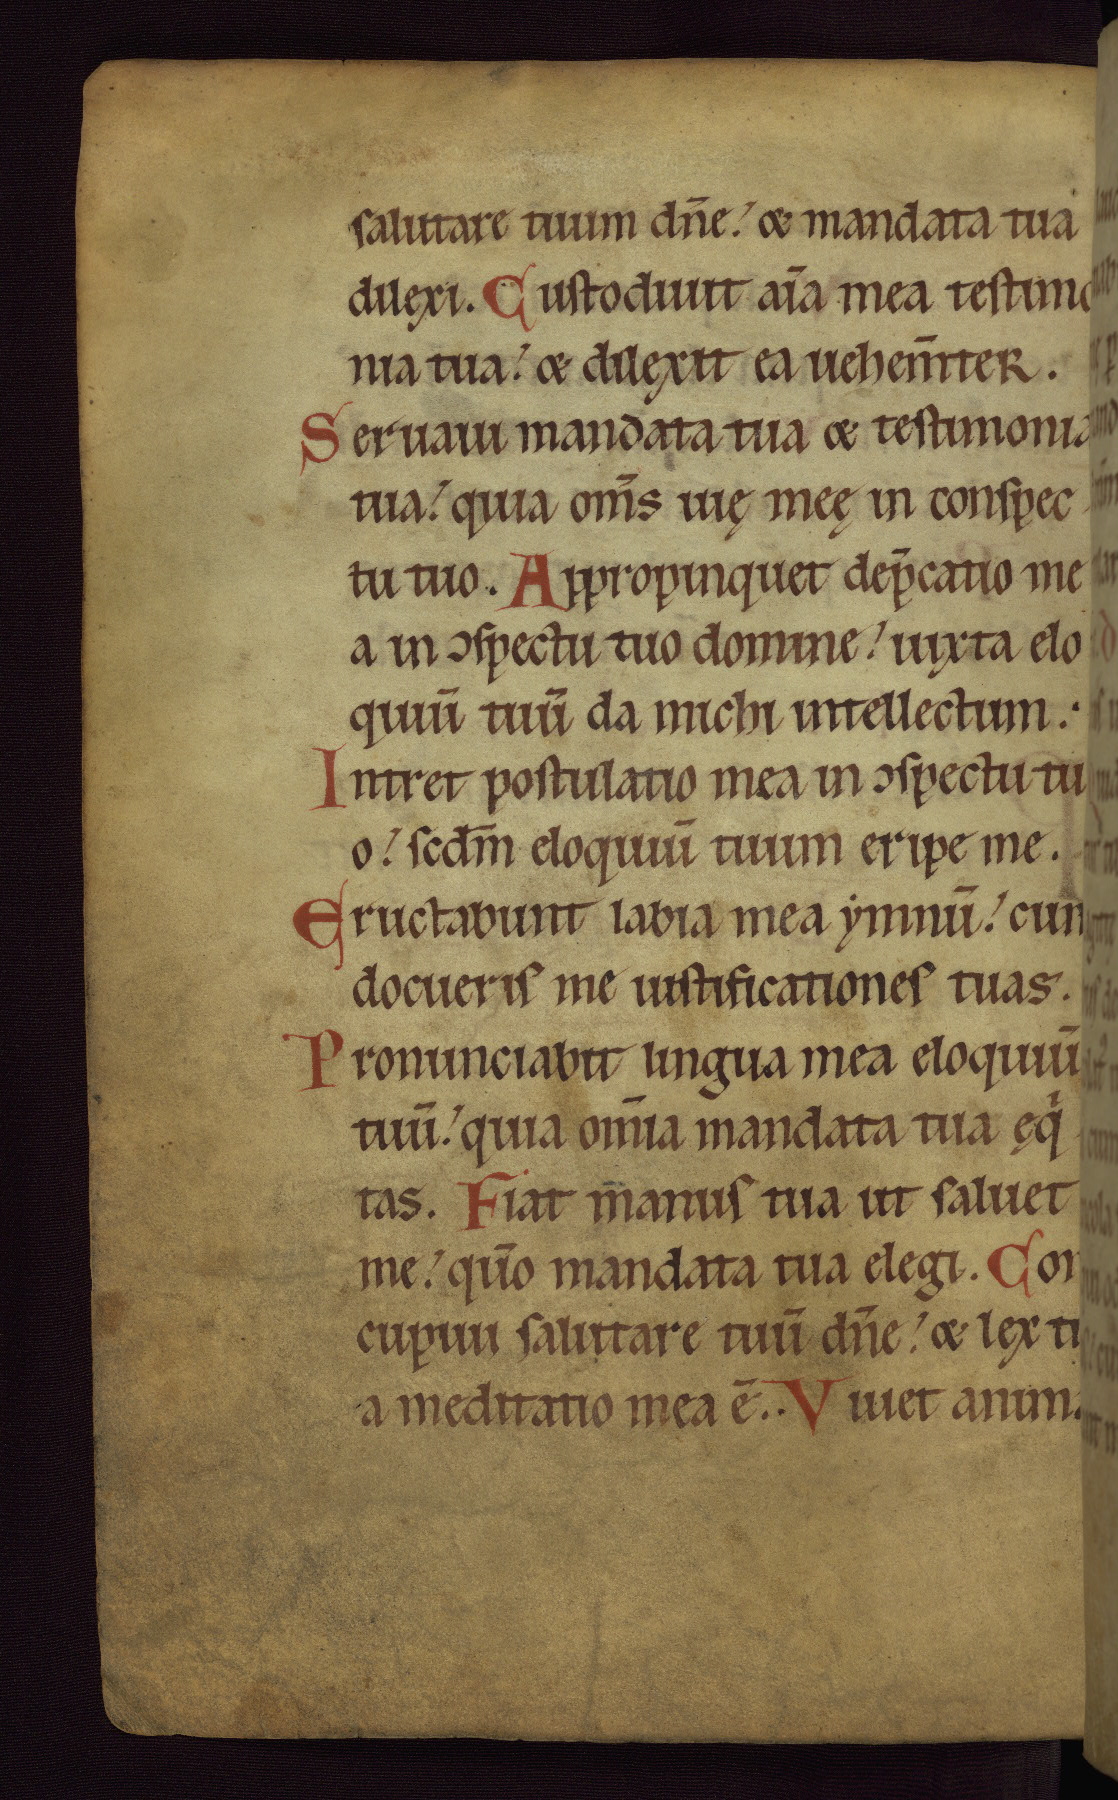 salutare tuum dn̄e! & mandata tua
dilexi. Custodiuit aīa mea testimo
nia tua! & dilexit ea uehem̄ter.
Seruaui mandata tua & testimonia
tua! quia om̄s uię meę in conspec
tu tuo. Appropinquet dep̄catio me
a in ɔspectu tuo domine! iuxta elo
quiū tuū da michi intellectum.
Intret postulatio mea in ɔspectu tu
o! scdm̄ eloquiū tuum eripe me.
Eructabunt labia mea ẏmnū! cum
docueris me iustificationes tuas.
Pronunciabit lingua mea eloquiū
tuū! quia om̄ia mandata tua ęqi
tas. Fiat manus tua ut saluet
me! qūo mandata tua elegi. Con
cupiui salutare tuū dn̄e! & lex tu
a meditatio mea ē. Viuet anima